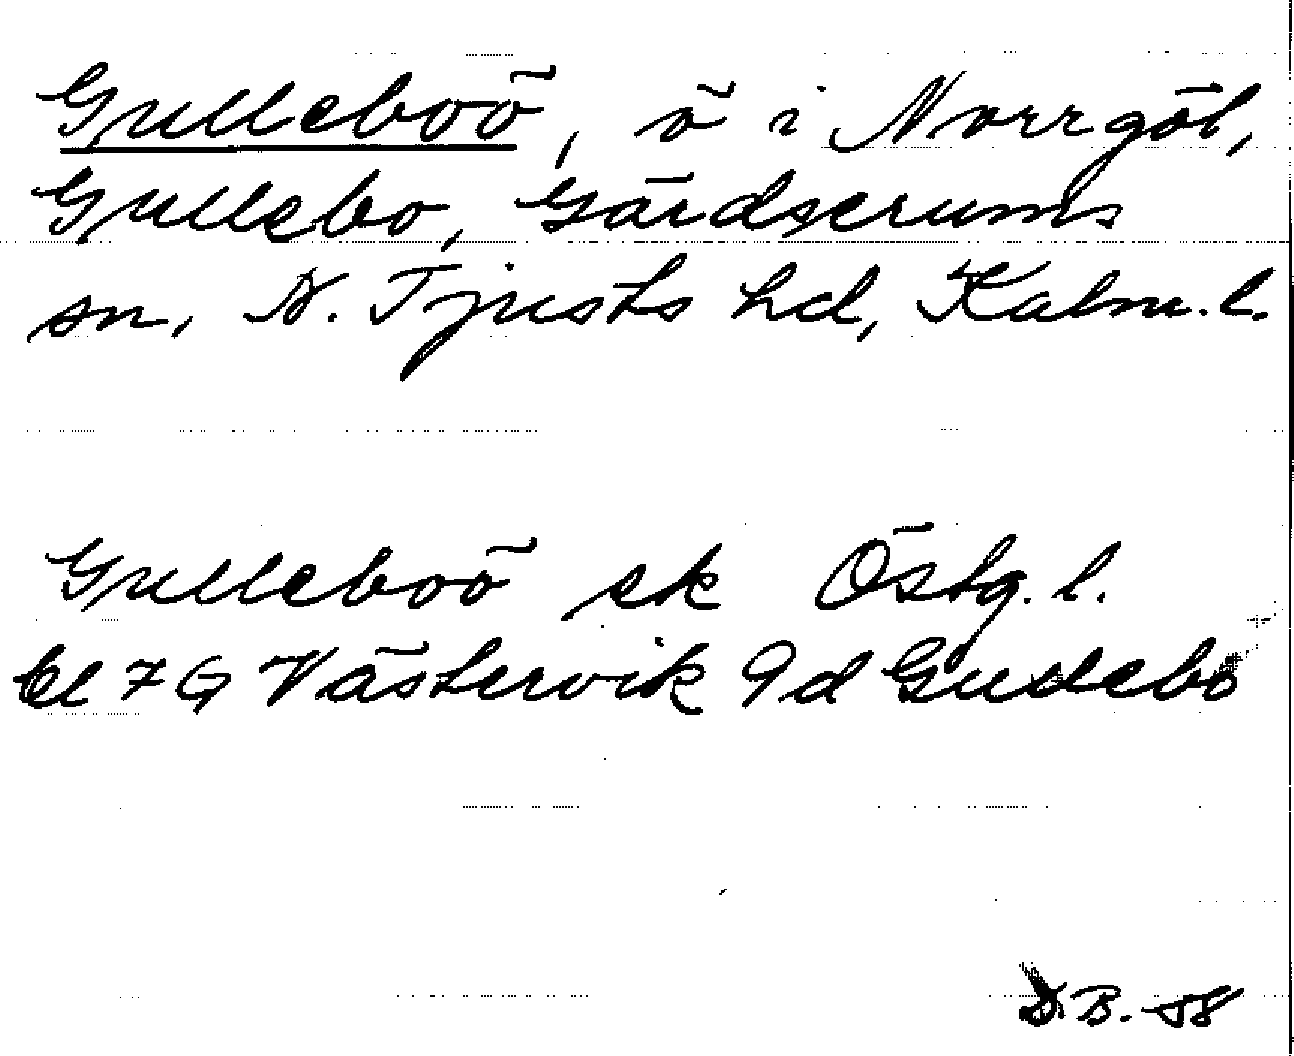 Gulleboö, ö i Norrgöl,
Gullebo, Gärdserums
sn, N. Tjusts hd, Kalm. l.
Gulleboö ek Östg. l.
bl 7 G Västervik 9d Gullebo
D.B. 58